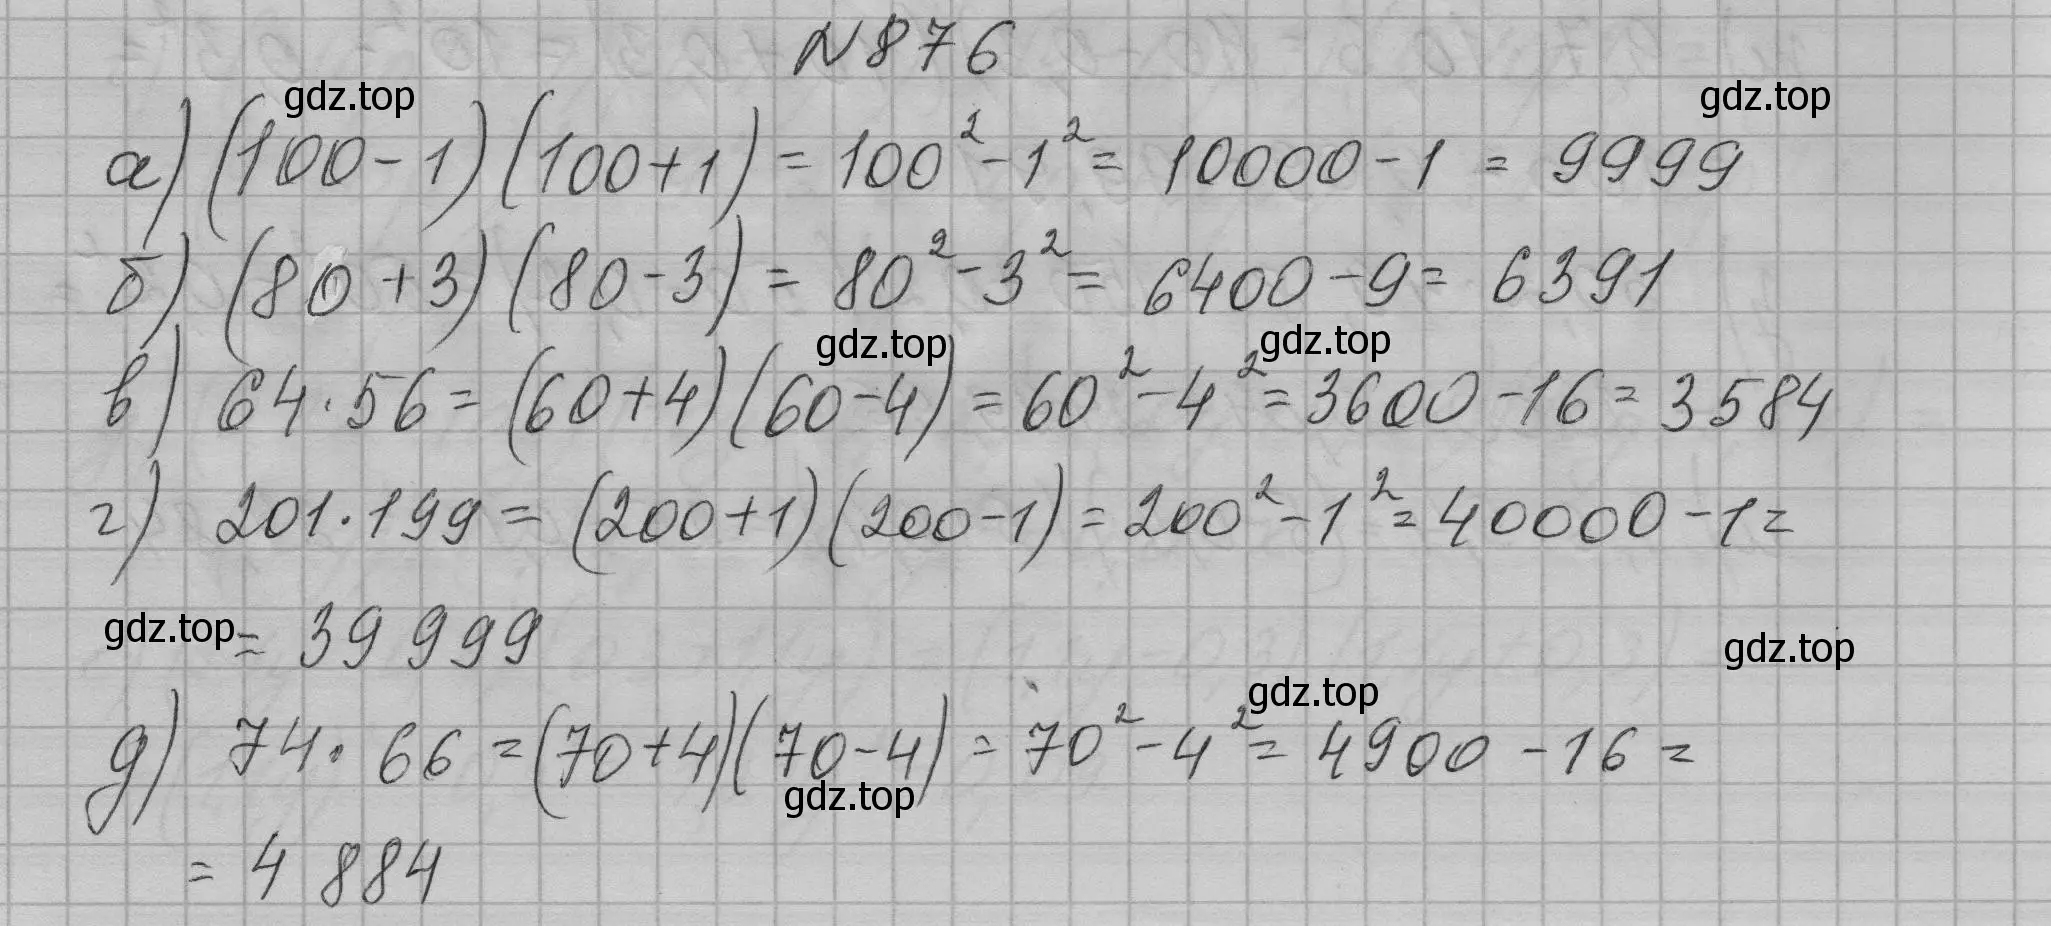 №876
gdz.top gdz.top
а) (100-1)(100+1) = 100² - 1² = 10000 - 1 = 9999
б) (80+3)(80-3) = 80² - 3² = 6400 - 9 = 6391
gdz.top gdz.top
в) 64·56 = (60+4)(60-4) = 60² - 4² = 3600 - 16 = 3584
г) 201·199 = (200+1)(200-1) = 200² - 1² = 40000 - 1 =
gdz.top = 39 999 gdz.top
gdz.top
д) 74·66 = (70+4)(70-4) = 70² - 4² = 4900 - 16 =
gdz.top
= 4 884